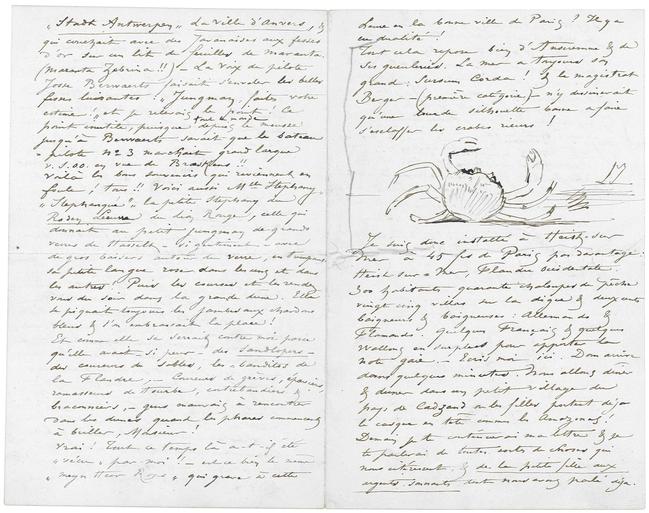 "Stadt Antwerpen" La ville d'Anvers, &
qui couchait avec des Javanaises aux fesses
d'or sur un lit de feuilles de maranta.
(Maranta Zebrina!!) – La voix du pilote
Josse Bervaerts faisait s'envoler les belles
fesses luisantes: "Jungman, faites votre
estime" et je relevais le point: la
tout le monde
point inutile, puisque depuis le mousse
jusqu'à Bervaerts savait que le bateau
pilote no 3 marchait grand largue
v. S.O.O. en vue de Breskens!!
Voilà les bons souvenirs (qui reviennent en
foule à tous!! Voici aussi Mlle Stephany
"Stephanque" la petite Stephany du
Rooden Leeuw du Lion Rouge, celle qui
donnait au petit Jungman de grands
verres de Hasselt – si gentiment – avec
de gros baisers autour du verre, en trempant
sa petite langue rose dans les uns et dans
les autres! Puis les courses et les rendez
vous du soir dans la grande dune. Elle
se piquait toujours les jambes aux chardons
bleus & l'on embrassait la place!
Et comme elle se serrait contre moi parce
qu'elle avait – si peur – des Sandlopers –
des coureurs de sables, les bandits de
la Flandre, – Coureurs de grèves, épaviers
ramasseurs de tourbe, contrebandiers &
braconniers, – gens mauvais à rencontrer
dans les dunes quand les phares commencent
à briller, Monsieur! –
Vrai! Tout ce temps là a-t-il été
"vécu" par moi! – est-ce bien le même
"meyn Heer Rops" qui grave à cette
heure en la bonne ville de Paris? Il y a
eu dualité!
Tout cela repose bien d'Anseremme & de
ses gueuleries. La mer a toujours son
grand: Sursum Corda! & le magistrat
Berger – (première catégorie) n'y dessinerait
qu'une lourde silhouette bonne à faire
s'esclaffer les crabes rieurs!
Je suis donc installé à Heist-sur
Mer à 45 frs de Paris pas davantage.
Heist sur Mer, Flandre occidentale.
300 habitants quarante chaloupes de pêche
vingt cinq villas sur la digue & deux cents
baigneurs & baigneuses: Allemands &
Flamands. Quelques Français & quelques
Wallons en surplus pour apporter la
note gaie. – Ecris moi ici. Dom arrive
dans quelques minutes. Nous allons dîner
& dîner dans un petit village du
pays de Cadzand où les filles portent déjà
le casque en tête comme les Amazones!
Demain je te continuerai ma lettre & je
te parlerai de toutes sortes de choses qui
nous intéressent & de la petite fille aux
argents sonnants dont nous avons parlé déjà.